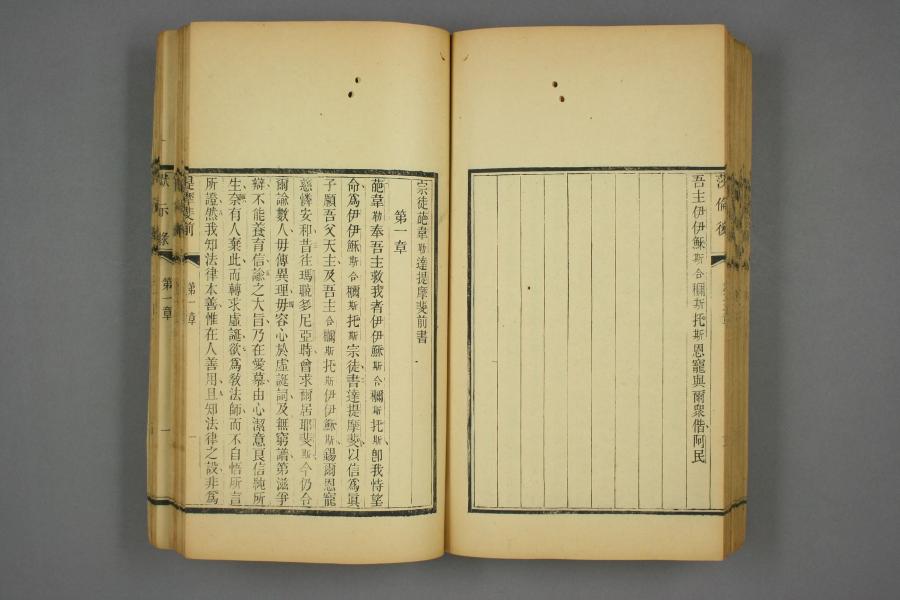 吾主伊伊穌斯合𣟄斯托斯恩寵與爾衆偕阿民
宗徒葩韋勒達提摩斐前書
第一章
葩韋勒奉吾主救我者伊伊穌斯合𣟄斯托斯卽我恃望
命爲伊伊穌斯合𣟄斯托斯宗徒書達提摩斐以信爲眞
子願吾父天主及吾主合𣟄斯托斯伊伊穌斯錫爾恩寵
慈憐安和昔往瑪聮多尼亞時曾求爾居耶斐斯今仍合
爾諭數人毋傳異理毋容心於虛誕詞及無窮譜第滋爭
辯不能養育信諭之大旨乃在愛慕由心潔意良信純所
生奈有人棄此而轉求虛誕欲爲敎法師而不自悟所言
所證然我知法律本善惟在人善用且知法律之設非爲
提摩斐前
第一章
一
默示錄
第一章
一